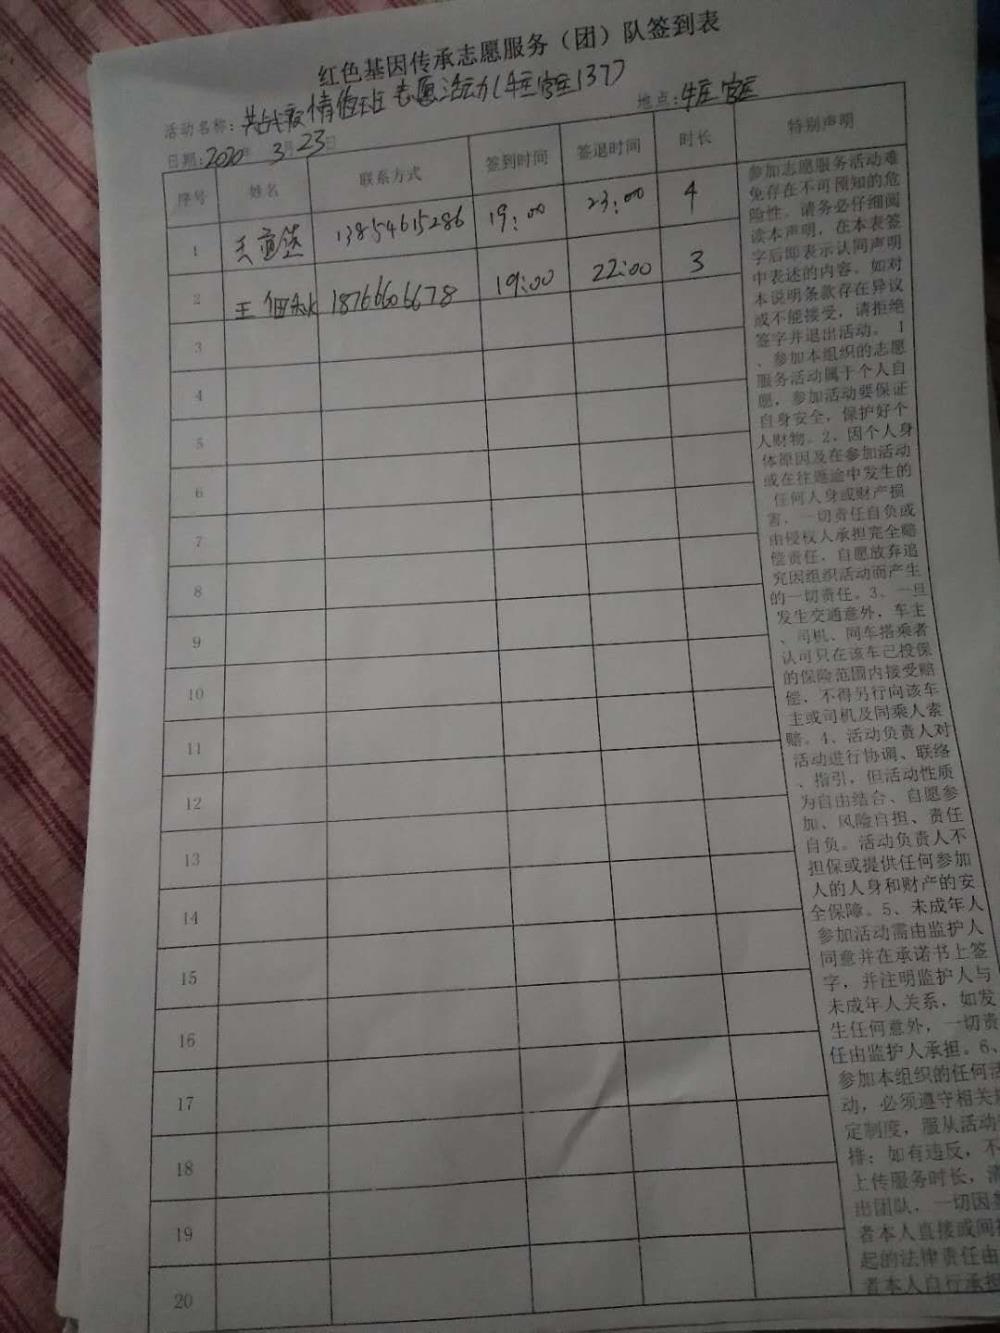 红色基因传承志愿服务（团）队签到表
活动名称：共战疫情值班志愿活动（ 137）
地点：
日期：2020年 3月23日
序号 姓名 联系方式 签到时间 签退时间 时长 特别声明
1 13854615286 19:00 23:00 4
2 王 18766606678 19:00 22:00 3
3
4
5
6
7
8
9
10
11
12
13
14
15
16
17
18
19
20
参加志愿服务活动难
免存在不可预知的危
险性。请务必仔细阅
读本声明，在本表签
字后即表示认同声明
中表述的内容。如对
本说明条款存在异议
或不能接受，请拒绝
签字并退出活动。 1
、参加本组织的志愿
服务活动属于个人自
愿，参加活动要保证
自身安全，保护好个
人财物。2、因个人身
体原因及在参加活动
或在往返途中发生的
任何人身或财产损
害，一切责任自负或
由侵权人承担完全赔
偿责任，自愿放弃追
究因组织活动而产生
的一切责任。3、一旦
发生交通意外，车主
、司机、同车搭乘者
认可只在该车已投保
的保险范围内接受赔
偿，不得另行向该车
主或司机及同乘人索
赔。4、活动负责人对
活动进行协调、联络
、指引，但活动性质
为自由结合、自愿参
加、风险自担、责任
自负。活动负责人不
担保或提供任何参加
人的人身和财产的安
全保障。5、未成年人
参加活动需由监护人
同意并在承诺书上签
字，并注明监护人与
未成年人关系，如发
生任何意外，一切责
任由监护人承担。6、
参加本组织的任何活
动，必须遵守相关规
定制度，服从活动
排；如有违反，不
上传服务时长，清
出团队，一切因
者本人直接或间接
起的法律责任由
者本人自行承担